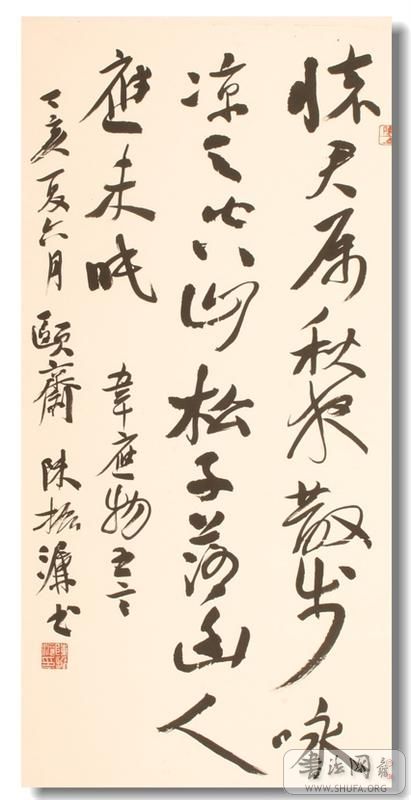 懷君属秋夜散步咏
凉天空山松子落幽人
應未眠 韋應物五言
丁亥夏六月 頤齋 陳振濂书
書法网
WWW.SHUFA.ORG